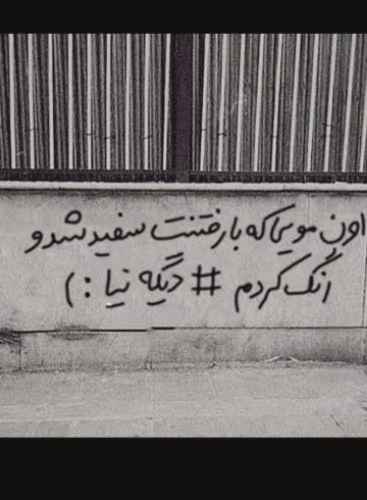 اون مویی که با رفتنت سفید شد و
رنگ کردم # دگیه نیا :)